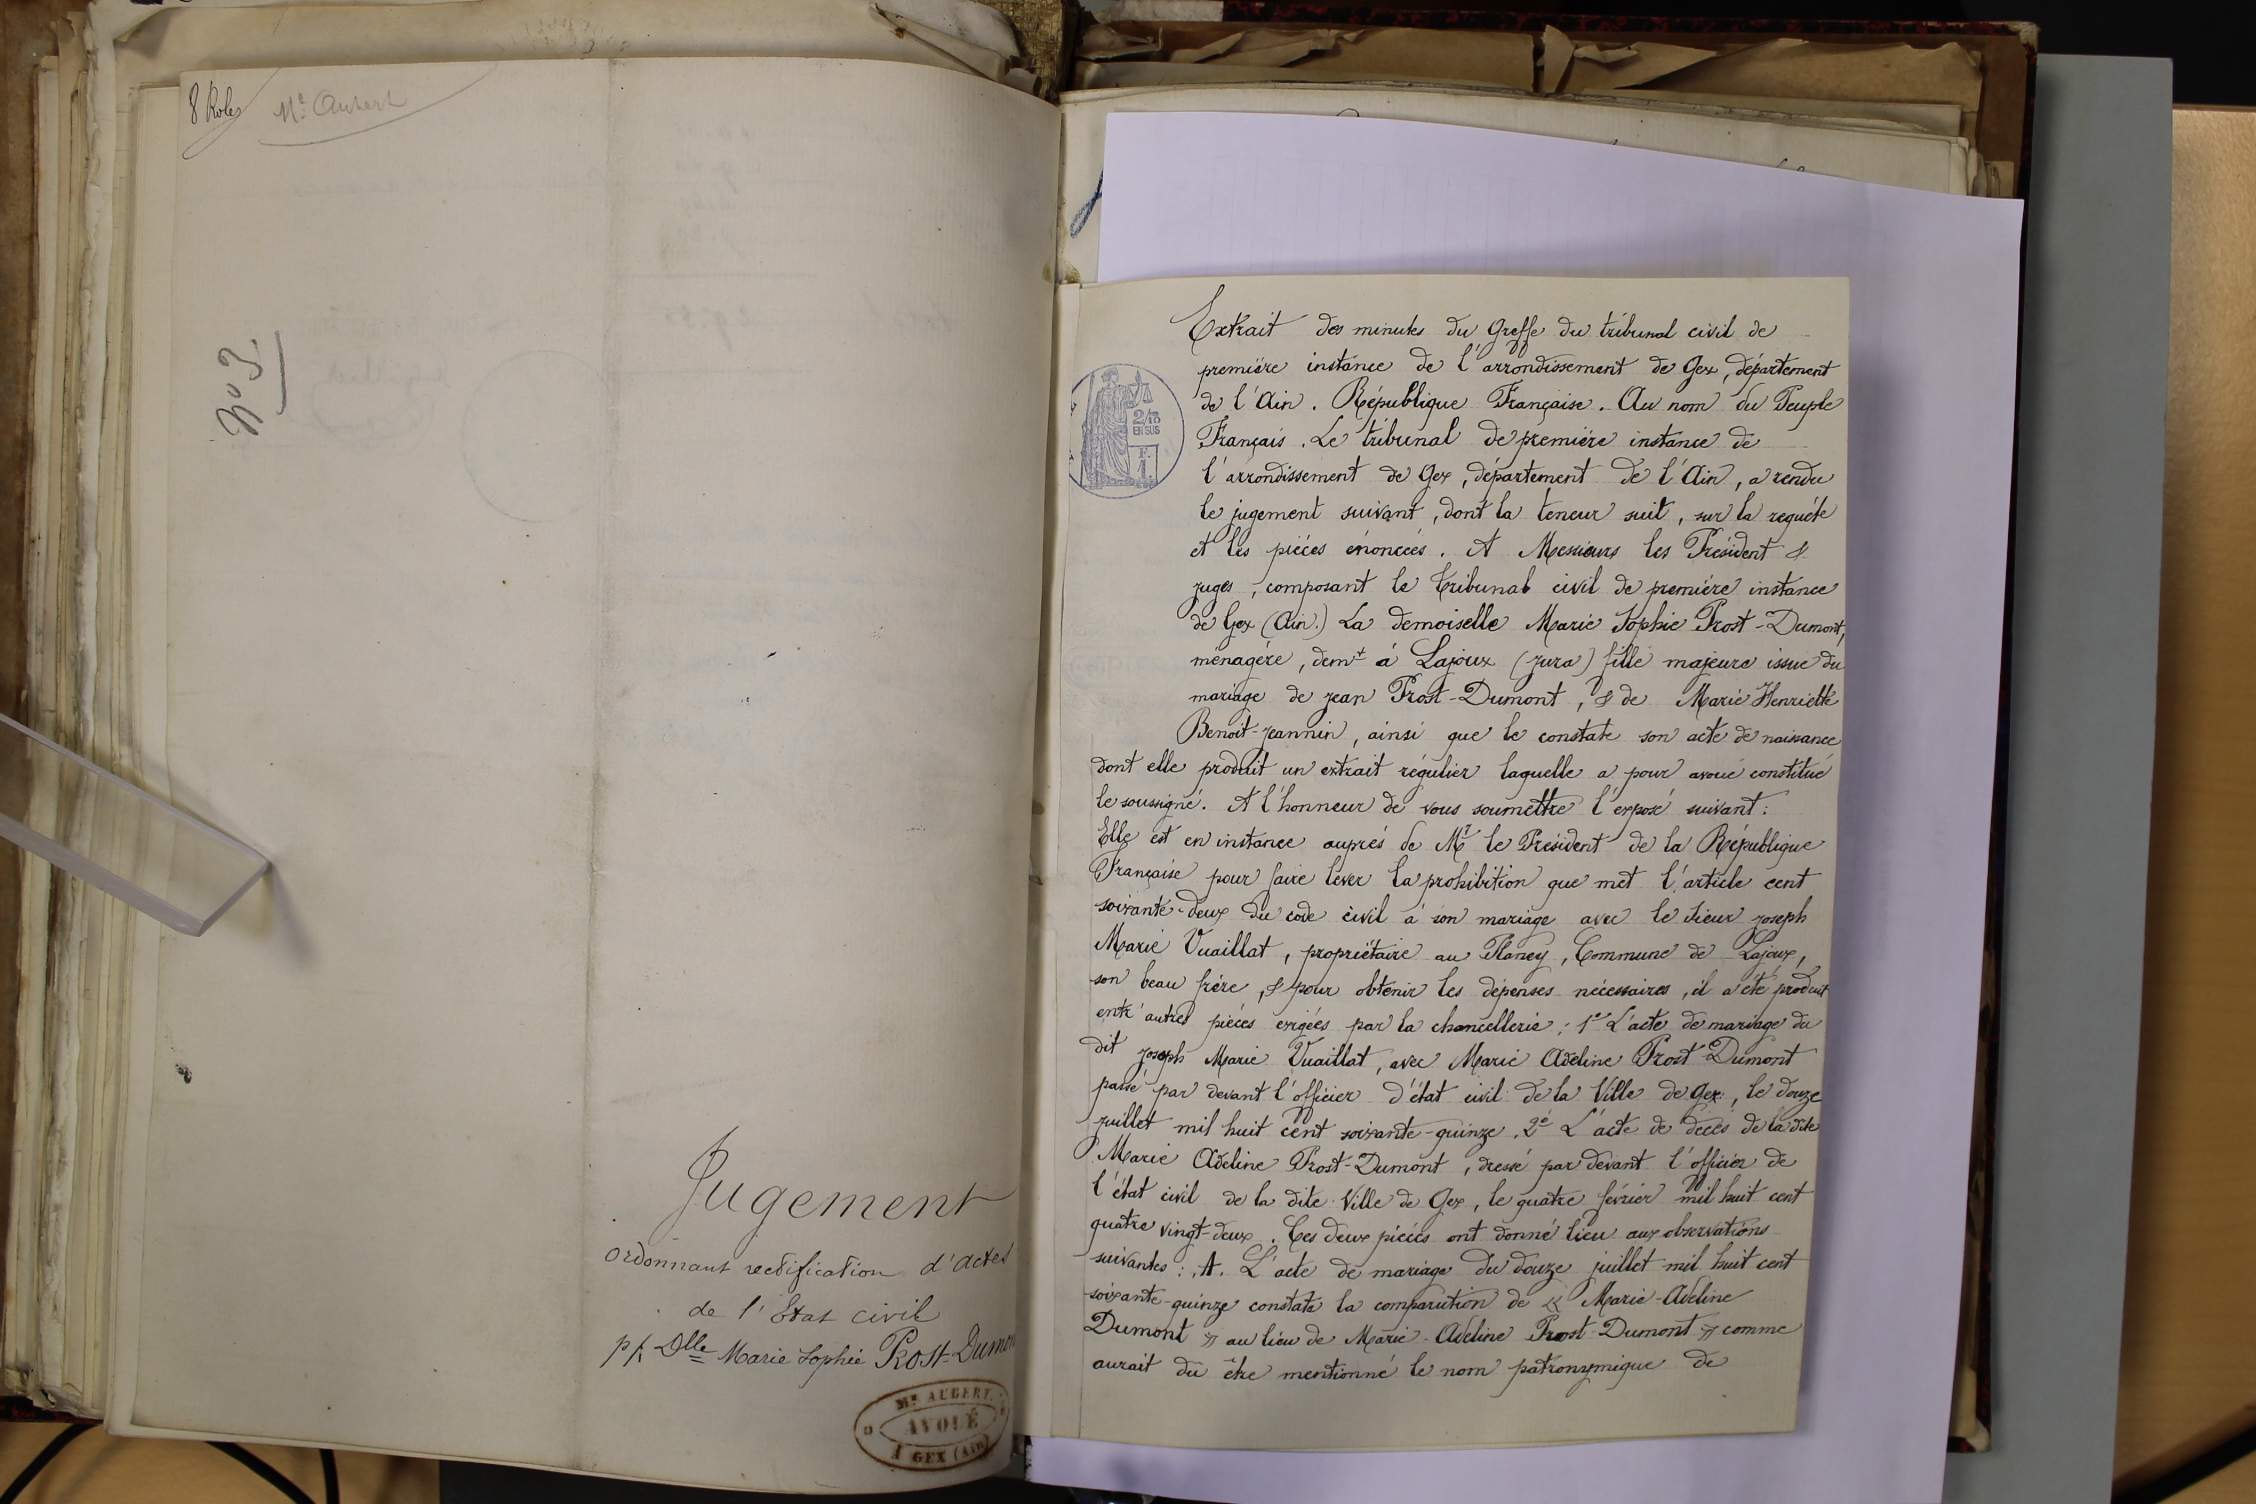 8 Roles
Me Aubert
No 3.
Jugement
ordonnant rectification d'actes
de l'Etat civil
pr Dlle Marie Sophie Prost-Dumon
Me AUBERT
AVOUÉ
A GEX (AIN)
2/10
EN SUS
F.
1.
Extrait des minutes du Greffe du tribunal civil de
premiére instance de l'arrondissement de Gex, département
de l'Ain. République Française. Au nom du Peuple
Français. Le tribunal de premiére instance de
l'arrondissement de Gex, département de l'Ain, a rendu
le jugement suivant, dont la teneur suit, sur la requéte
et les piéces énoncées. A Messieurs les Président &
juges, composant le tribunal civil de premiére instance
de Gex (Ain.) La demoiselle Marie Sophie Prost-Dumont,
ménagére, demt á Lajoux (Jura) fille majeure issue du
mariage de Jean Prost-Dumont, & de Marie Henriette
Benoit-Jeannin, ainsi que le constate son acte de naissance
dont elle produit un extrait régulier laquelle a pour avoué constitué
le soussigné. A l'honneur de vous soumettre l'exposé suivant:
Elle est en instance auprés de Mr le Président de la République
Française pour faire lever la prohibition que met l'article cent
soixante-deux du code civil á son mariage avec le sieur Joseph
Marie Vuaillat, propriétaire au Planey, Commune de Lajoux,
son beau frére, & pour obtenir les dépenses nécessaires, il a été produit
entr'autres piéces exigées par la chancellerie: 1e L'acte de mariage du
dit Joseph Marie Vuaillat, avec Marie Adeline Prost-Dumont
passé par devant l'officier d'état civil de la Ville de Gex, le douze
juillet mil huit cent soixante-quinze. 2e L'acte de décés de la dite
Marie Adeline Prost-Dumont, dressé par devant l'officier de
l'état civil de la dite Ville de Gex, le quatre février mil huit cent
quatre vingt-deux. Ces deux piéces ont donné lieu aux observations
suivantes: A. L'acte de mariage du douze juillet mil huit cent
soixante-quinze constate la comparution de « Marie-Adeline
Dumont » au lieu de Marie-Adeline Prost-Dumont » comme
aurait dû être mentionné le nom patronymique de